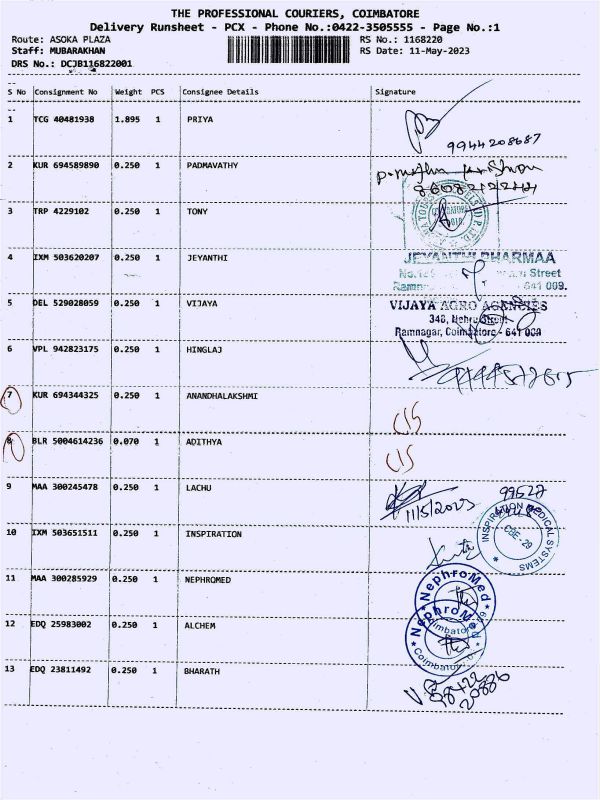 THE PROFESSIONAL COURIERS, COIMBATORE
Delivery Runsheet - PCX - Phone No.:0422-3505555 - Page No.:1
Route: ASOKA PLAZA RS No.: 1168220
Staff: MUBARAKHAN RS Date: 11-May-2023
DRS No.: DCJB116822001
S No Consignment No Weight PCS Consignee Details Signature
1 TCG 40481938 1.895 1 PRIYA
9944208687
2 KUR 694589890 0.250 1 PADMAVATHY
3 TRP 4229102 0.250 1 TONY
4 IXM 503620207 0.250 1 JEYANTHI JEYANTHI PHARMAA
Street
641 009.
5 DEL 529028059 0.250 1 VIJAYA VIJAYA AGRO AGENCIES
348, Nehru Street
Ramnagar, Coimbatore - 641 009
6 VPL 942823175 0.250 1 HINGLAJ
7 KUR 694344325 0.250 1 ANANDHALAKSHMI
8 BLR 5004614236 0.070 1 ADITHYA
9 MAA 300245478 0.250 1 LACHU
11/5/2023
99527
10 IXM 503651511 0.250 1 INSPIRATION
INSPIRATION MEDICAL SYSTEMS
CBE - 29
11 MAA 300285929 0.250 1 NEPHROMED
NephroMed
12 EDQ 25983002 0.250 1 ALCHEM
NephroMed
Coimbatore
13 EDQ 23811492 0.250 1 BHARATH
20886